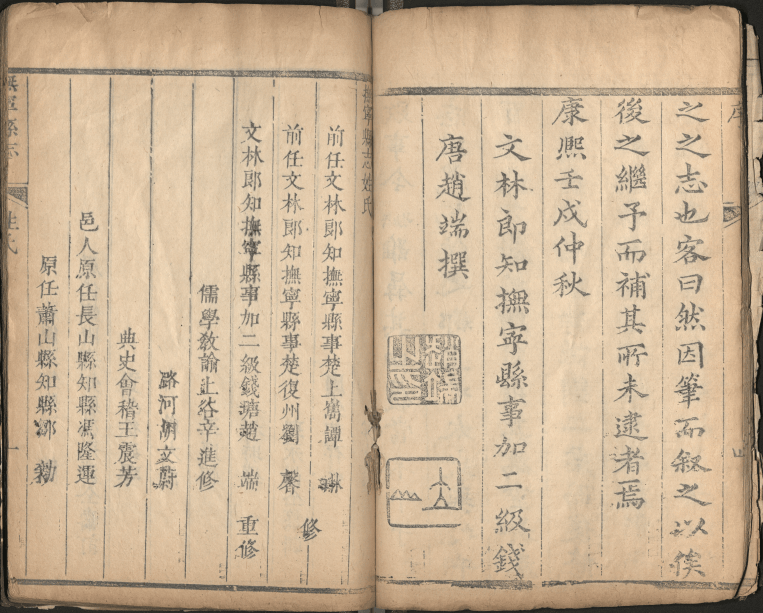 之之志也客曰然因筆而叙之以俟
後之繼予而補其所未逮者焉
康熙壬戌仲秋
文林郎知撫寧縣事加二級錢
唐趙端撰
撫寧縣志姓氏
前任文林郎知撫寧縣事楚上舊譚琳
前任文林郎知撫寧縣事楚復州劉馨 修
文林郎知撫寧縣事加二級錢塘趙端 重修
儒學教諭上洛辛進修
潞河胡文蔚
典史會稽王震芳
邑人原任長山縣知縣馮隆運
原任蕭山縣知縣鄒勷
撫寧縣志 姓氏 一